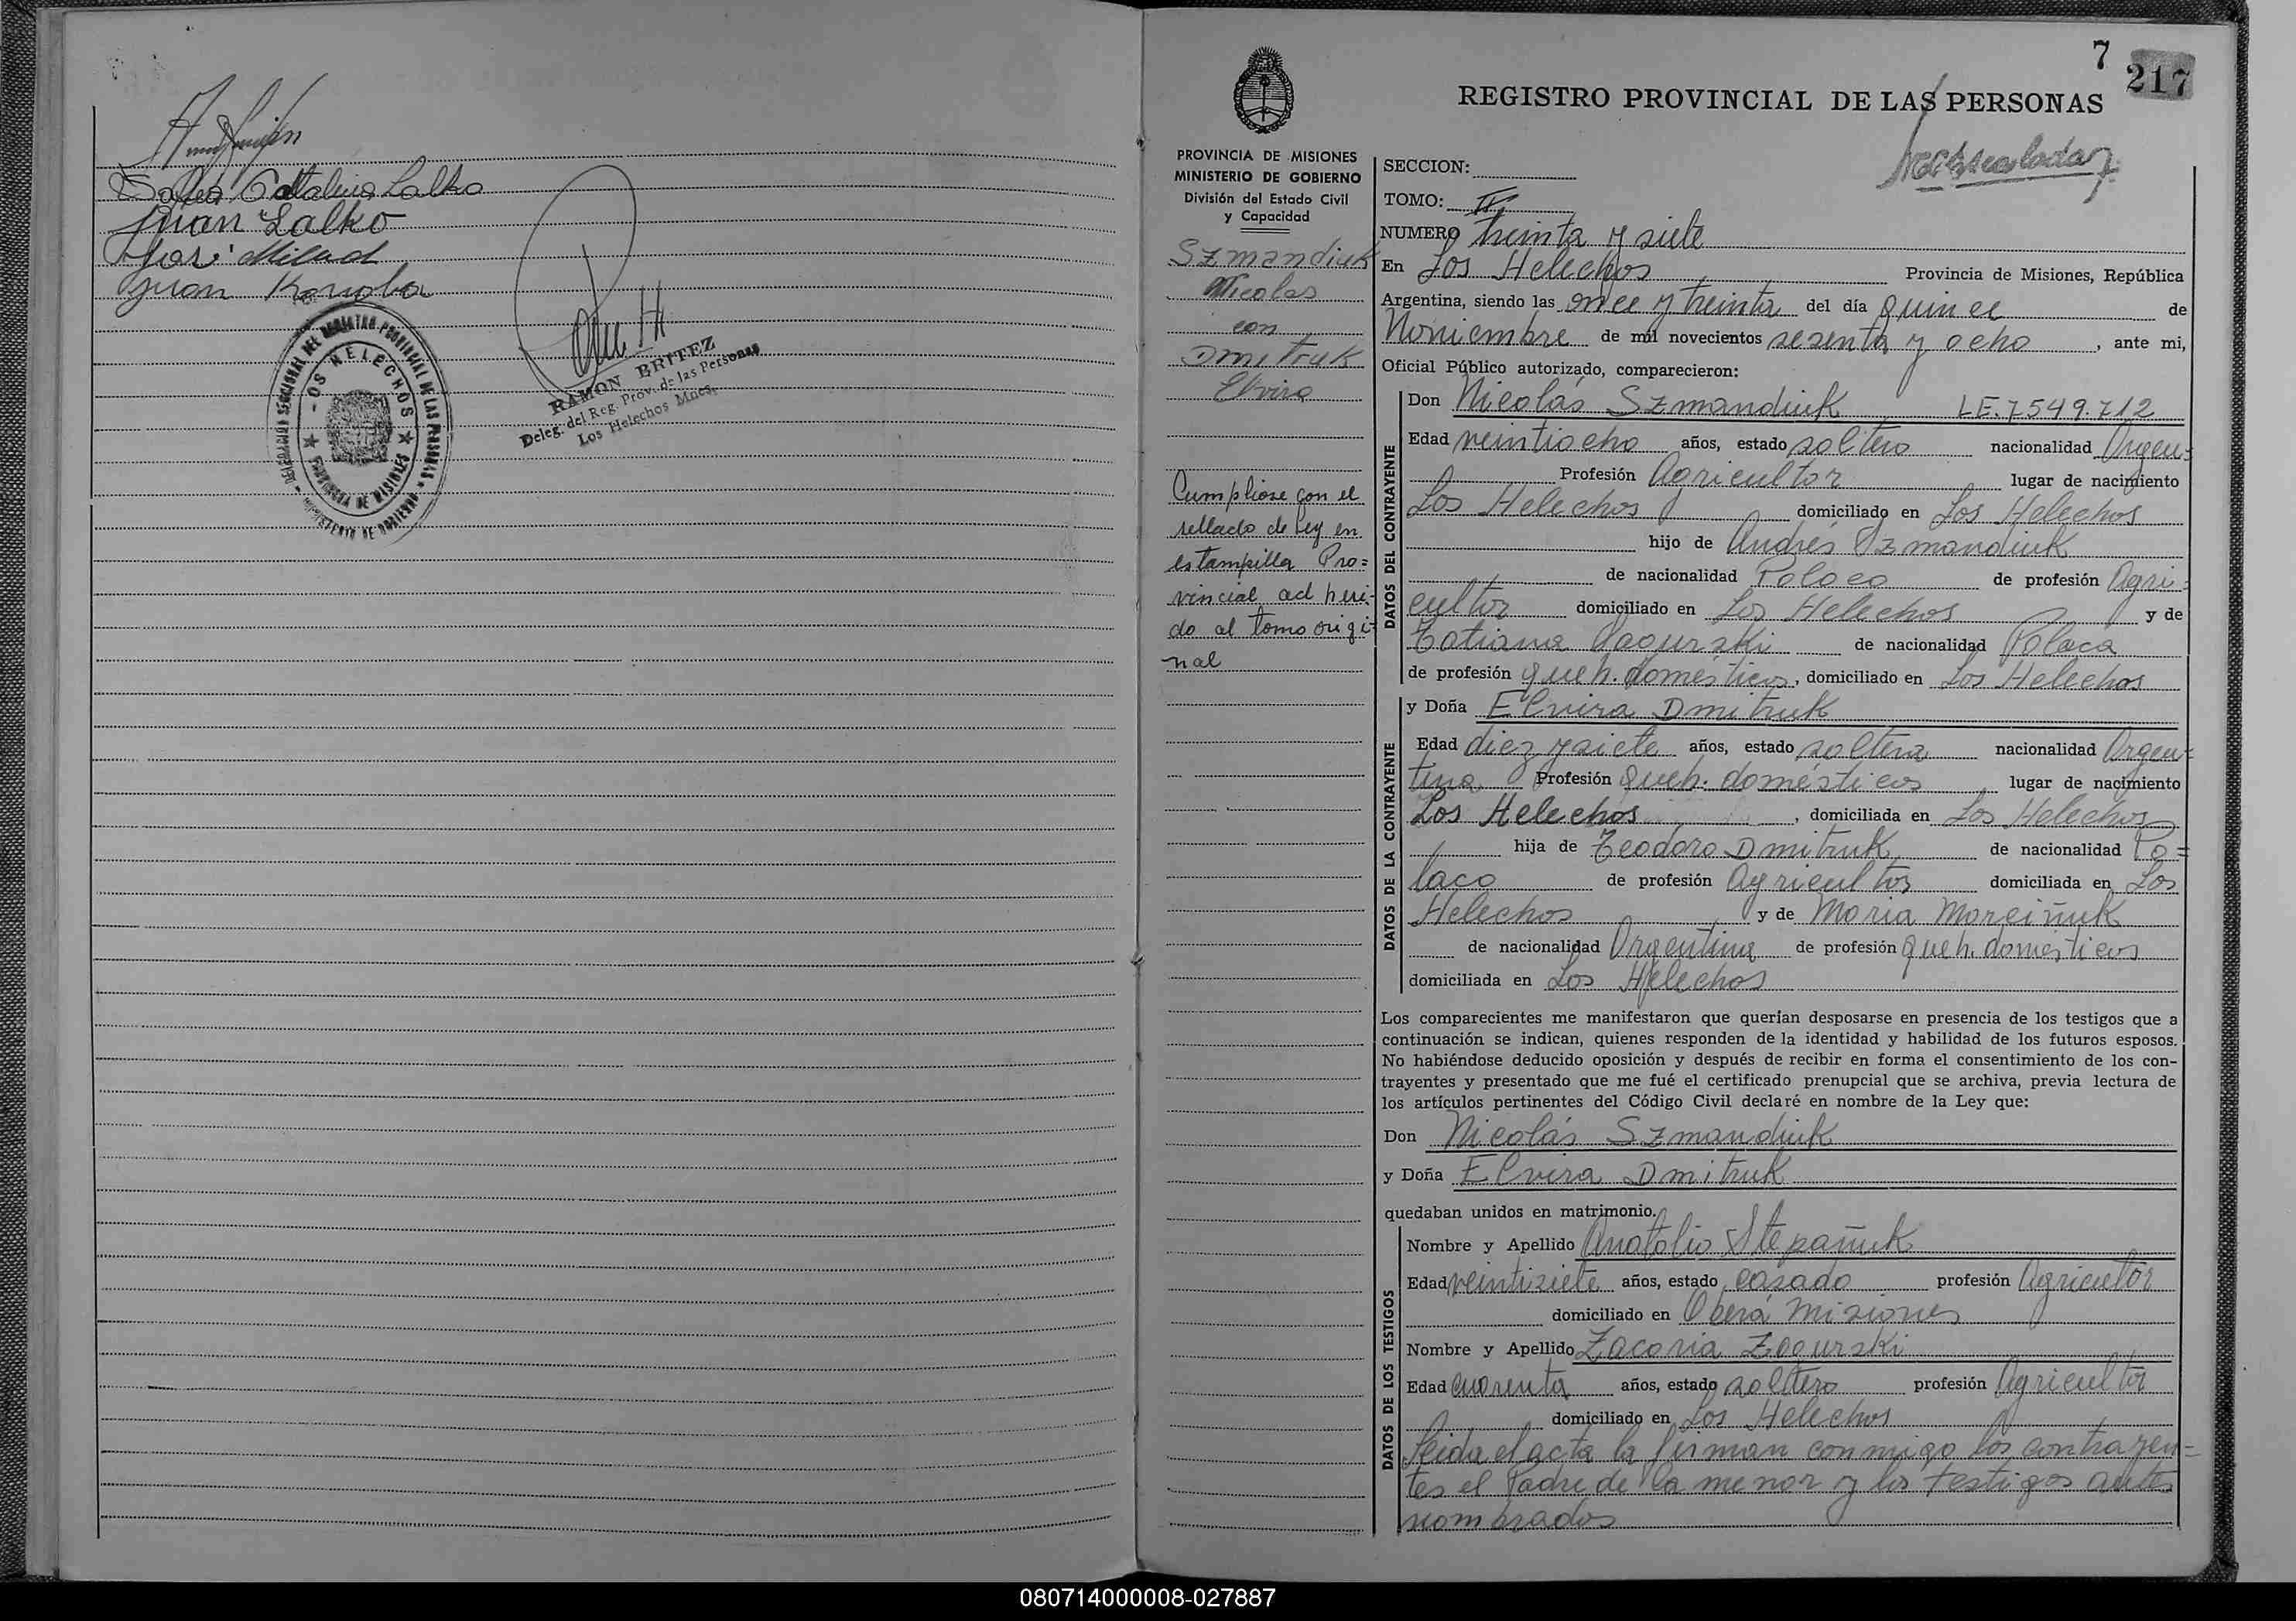 Catalina Lalko
Juan Lalko
José Milud
Juan Konoba
RAMON BRITEZ
Deleg. del Reg. Prov. de las Personas
Los Helechos Mnes.
LOS HELECHOS
PROVINCIA DE MISIONES
MINISTERIO DE GOBIERNO
7
217
REGISTRO PROVINCIAL DE LAS PERSONAS
PROVINCIA DE MISIONES
MINISTERIO DE GOBIERNO
División del Estado Civil
y Capacidad
Szmandiuk
Nicolas
con
Dmitruk
Elvira
Cumpliose con el
sellado de Ley en
estampilla Pro=
vincial adheri-
do al tomo origi-
nal
SECCION:
TOMO: II
NUMERO treinta y siete
En Los Helechos Provincia de Misiones, República
Argentina, siendo las once y treinta del día quince de
Noviembre de mil novecientos sesenta y ocho, ante mi,
Oficial Público autorizado, comparecieron:
DATOS DEL CONTRAYENTE
Don Nicolás Szmandiuk LE.7549.712
Edad veintiocho años, estado soltero nacionalidad Argen=
Profesión Agricultor lugar de nacimiento
Los Helechos domiciliado en Los Helechos
hijo de Andrés Szmandiuk
de nacionalidad Polaco de profesión Agri=
cultor domiciliado en Los Helechos y de
Tatiana Zagurski de nacionalidad Polaca
de profesión queh. domésticos, domiciliado en Los Helechos
DATOS DE LA CONTRAYENTE
y Doña Elvira Dmitruk
Edad diez y siete años, estado soltera nacionalidad Argen=
tina Profesión queh. domésticos lugar de nacimiento
Los Helechos, domiciliada en Los Helechos
hija de Teodoro Dmitruk de nacionalidad Po=
laco de profesión Agricultor domiciliada en Los
Helechos y de Maria Marciñuk
de nacionalidad Argentina de profesión queh. domésticos
domiciliada en Los Helechos
Los comparecientes me manifestaron que querían desposarse en presencia de los testigos que a
continuación se indican, quienes responden de la identidad y habilidad de los futuros esposos.
No habiéndose deducido oposición y después de recibir en forma el consentimiento de los con-
trayentes y presentado que me fué el certificado prenupcial que se archiva, previa lectura de
los artículos pertinentes del Código Civil declaré en nombre de la Ley que:
Don Nicolás Szmandiuk
y Doña Elvira Dmitruk
quedaban unidos en matrimonio.
DATOS DE LOS TESTIGOS
Nombre y Apellido Anatolio Stepañuk
Edad veintisiete años, estado casado profesión Agricultor
domiciliado en Oberá Misiones
Nombre y Apellido Zacaria Zagurski
Edad cuarenta años, estado soltero profesión Agricultor
domiciliado en Los Helechos
Leida el acta la firman conmigo los contrayen=
tes el Padre de la menor y los testigos antes
nombrados
080714000008-027887